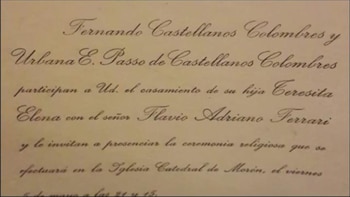 Fernando Castellanos Colombres y
Urbana E. Passo de Castellanos Colombres
participan a Ud. el casamiento de su hija Teresita
Elena con el señor Flavio Adriano Ferrari
y le invitan a presenciar la ceremonia religiosa que se
efectuará en la Iglesia Catedral de Morón, el viernes
de mayo a las 21 y 15.